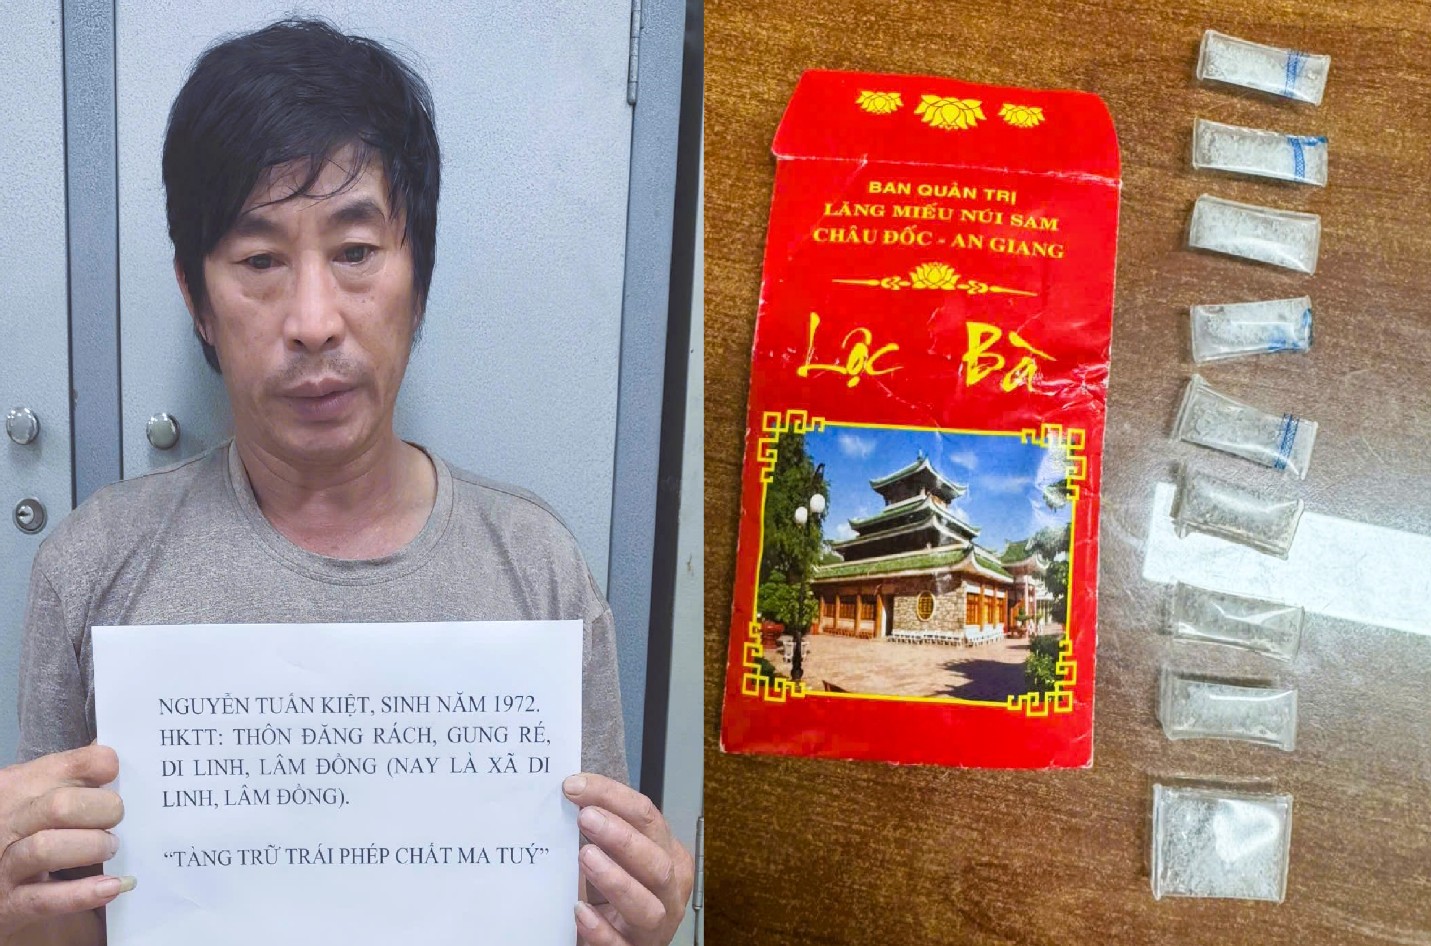 NGUYỄN TUẤN KIỆT, SINH NĂM 1972.
HKTT: THÔN ĐĂNG RÁCH, GUNG RÉ,
DI LINH, LÂM ĐỒNG (NAY LÀ XÃ DI
LINH, LÂM ĐỒNG).
“TÀNG TRỮ TRÁI PHÉP CHẤT MA TUÝ”
BAN QUẢN TRỊ
LĂNG MIẾU NÚI SAM
CHÂU ĐỐC - AN GIANG
Lộc Bà